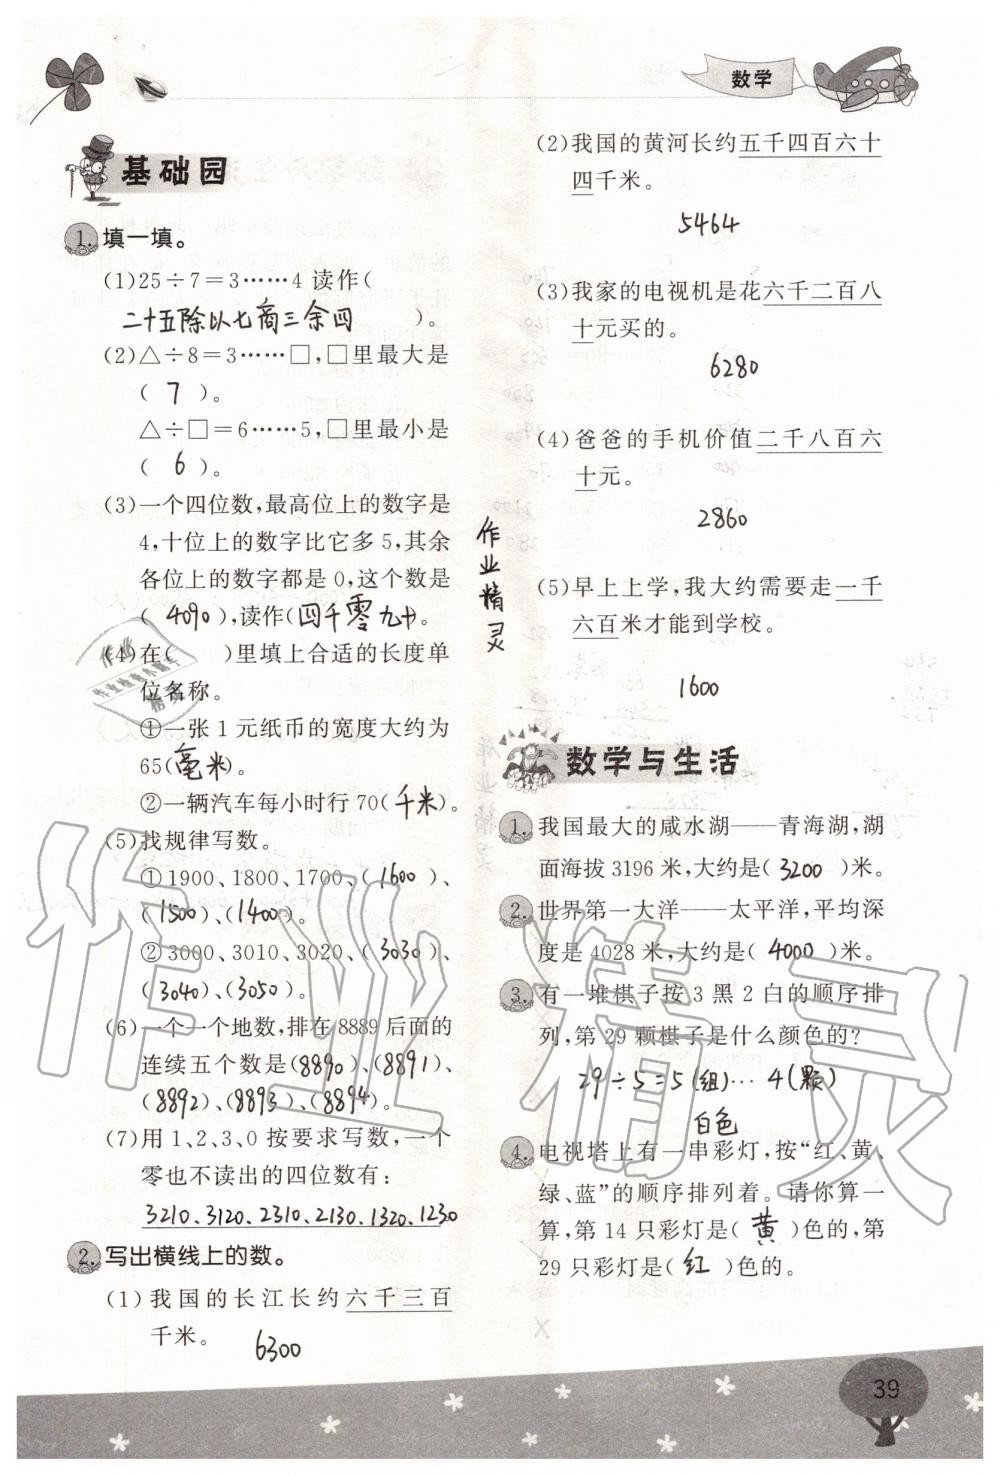 数学
基础园
1. 填一填。
(1)25÷7=3……4 读作(
二十五除以七商三余四 )。
(2)△÷8=3……□,□里最大是
( 7 )。
△÷□=6……5,□里最小是
( 6 )。
(3)一个四位数,最高位上的数字是
4,十位上的数字比它多5,其余
各位上的数字都是0,这个数是
( 4090 ),读作(四千零九十)。
(4)在( )里填上合适的长度单
位名称。
①一张1元纸币的宽度大约为
65(毫米)。
②一辆汽车每小时行70(千米)。
(5)找规律写数。
①1900、1800、1700、(1600)、
(1500)、(1400)。
②3000、3010、3020、(3030)、
(3040)、(3050)。
(6)一个一个地数,排在8889后面的
连续五个数是(8890)、(8891)、
(8892)、(8893)、(8894)。
(7)用1、2、3、0按要求写数,一个
零也不读出的四位数有:
3210、3120、2310、2130、1320、1230
2. 写出横线上的数。
(1)我国的长江长约六千三百
千米。
6300
(2)我国的黄河长约五千四百六十
四千米。
5464
(3)我家的电视机是花六千二百八
十元买的。
6280
(4)爸爸的手机价值二千八百六
十元。
2860
(5)早上上学,我大约需要走一千
六百米才能到学校。
1600
作业精灵
数学与生活
1. 我国最大的咸水湖——青海湖,湖
面海拔3196米,大约是( 3200 )米。
2. 世界第一大洋——太平洋,平均深
度是4028米,大约是( 4000 )米。
3. 有一堆棋子按3黑2白的顺序排
列,第29颗棋子是什么颜色的?
29÷5=5(组)…4(颗)
白色
4. 电视塔上有一串彩灯,按“红、黄、
绿、蓝”的顺序排列着。请你算一
算,第14只彩灯是( 黄 )色的,第
29只彩灯是( 红 )色的。
39
作业精灵